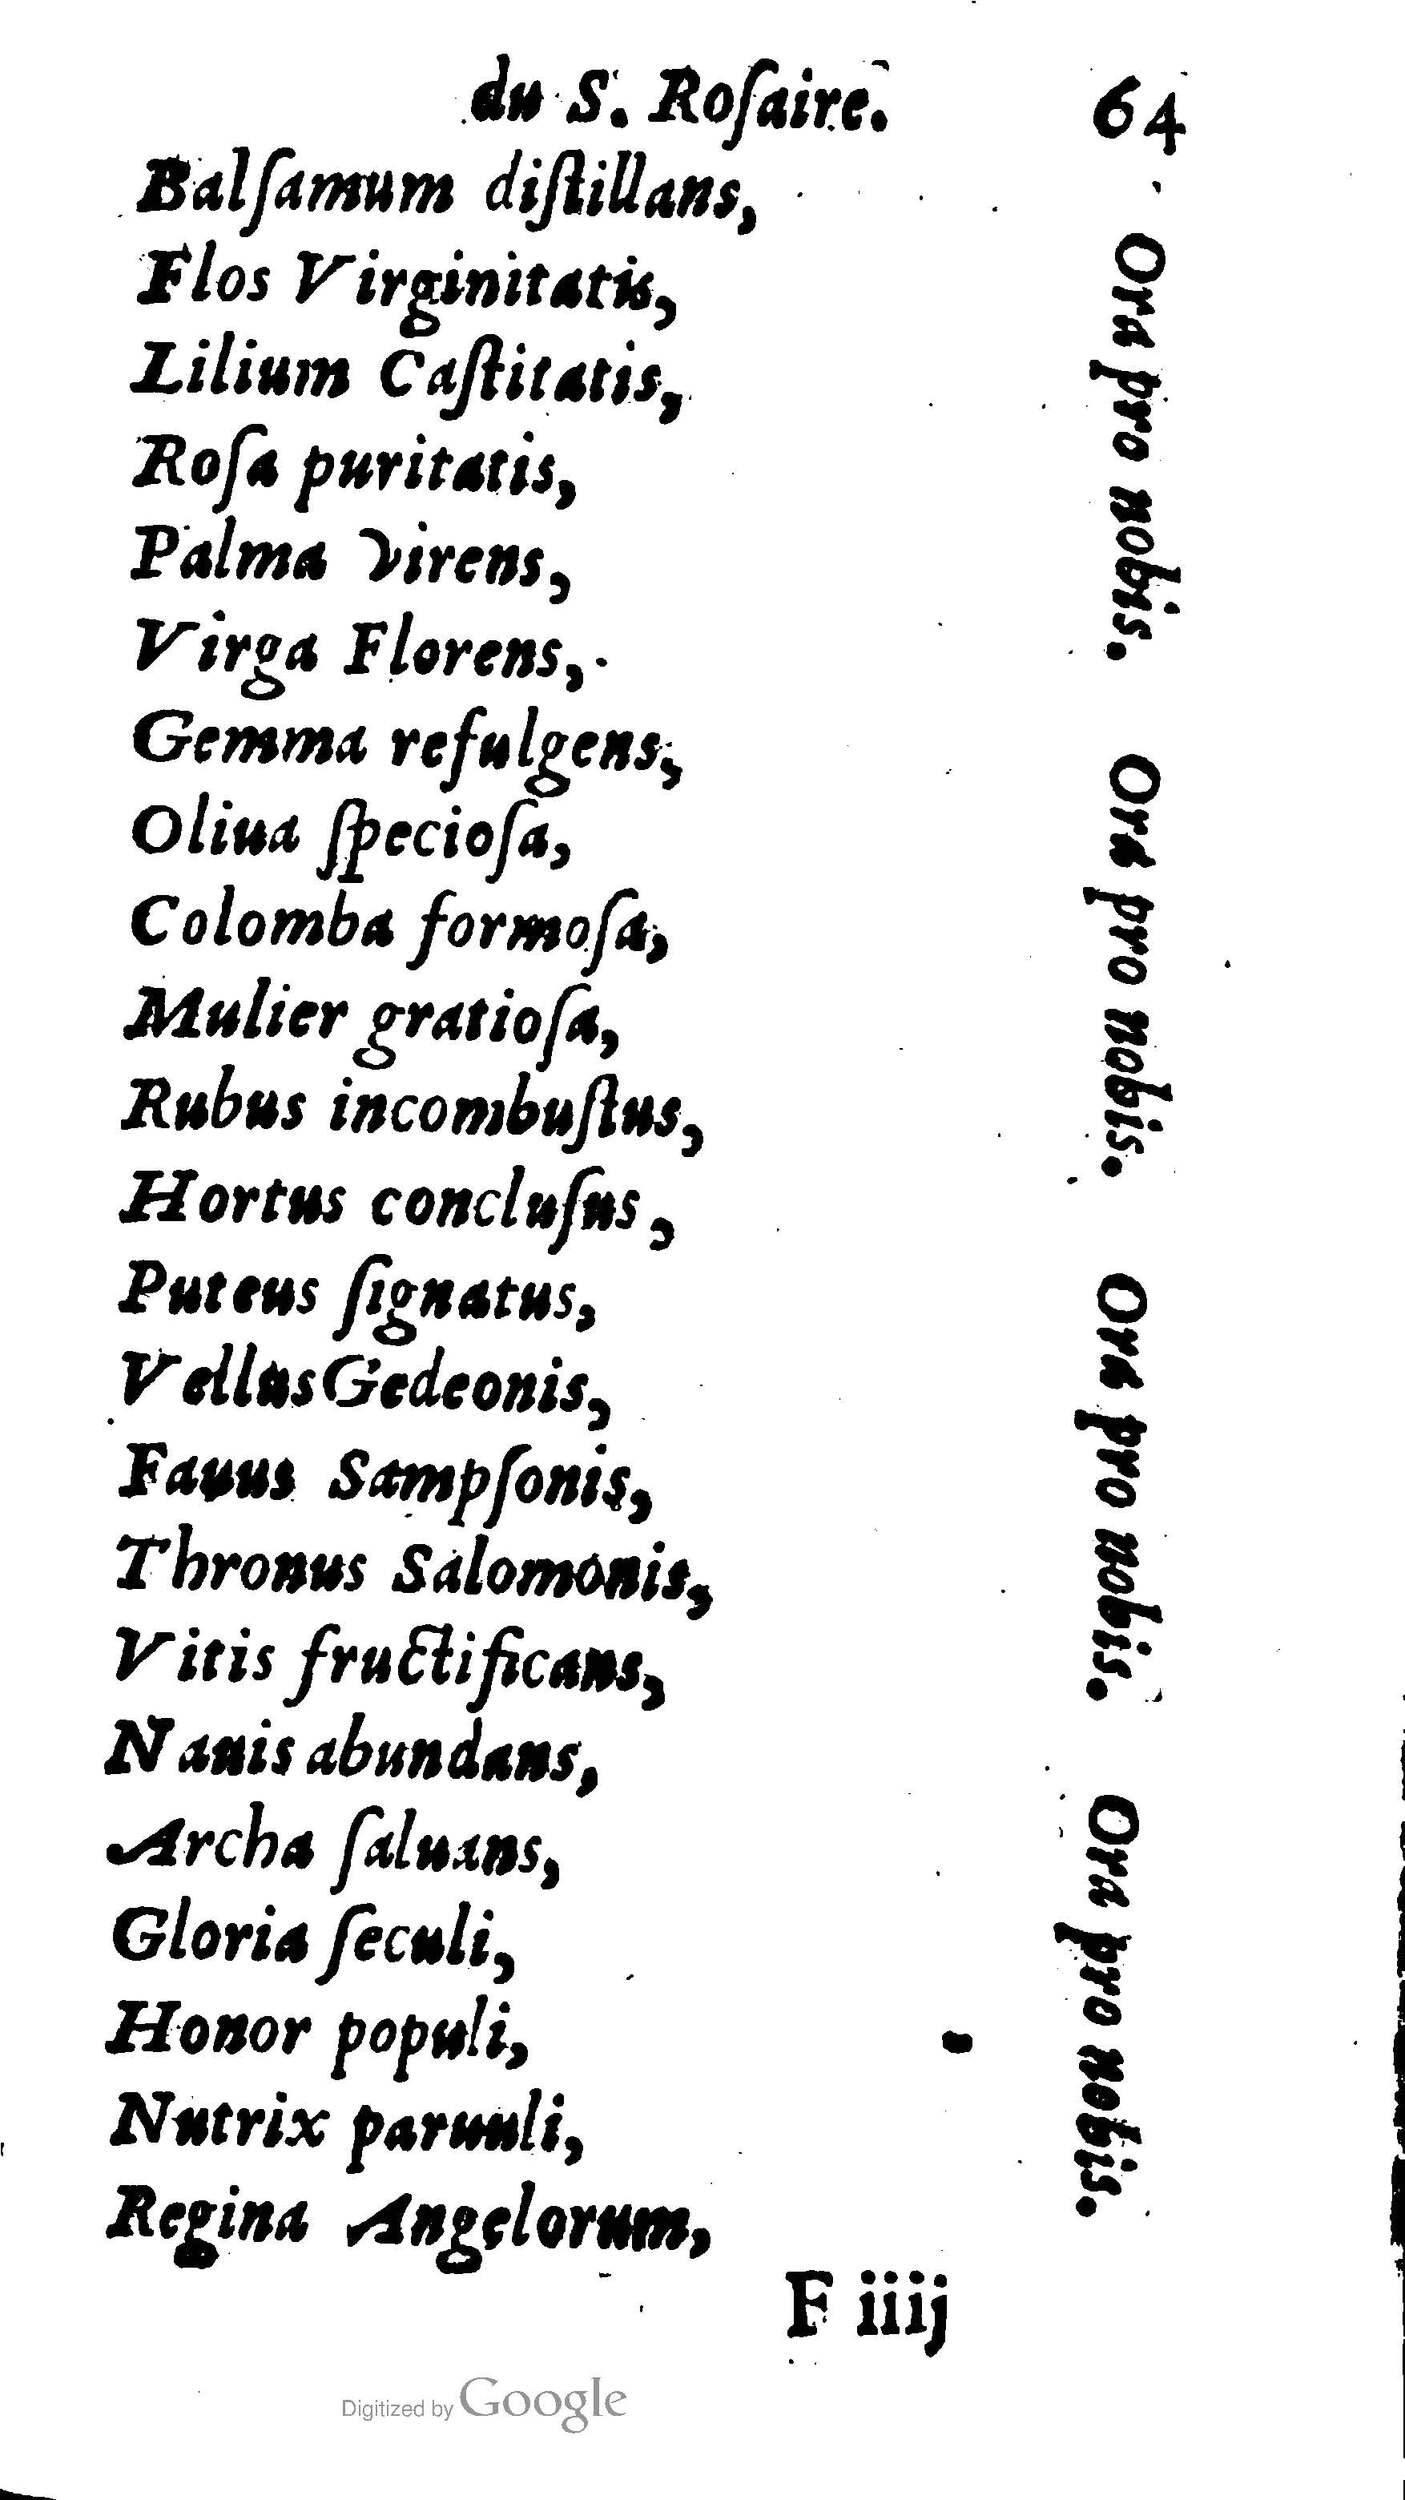 du S. Roſaire. 64
Balſamum diſtillans,
Flos Virginitatis,
Lilium Caſtitatis,
Roſa puritatis,
Palma virens,
Virga Florens,
Gemma refulgens,
Oliua ſpecioſa,
Colomba formoſa,
Mulier gratioſa,
Rubus incombuſtus,
Hortus concluſus,
Puteus ſignatus,
Vellus Gedeonis,
Fauus Sampſonis,
Thronus Salomonis,
Vitis fructificans,
Nauis abundans,
Archa ſaluans,
Gloria ſeculi,
Honor populi,
Nutrix paruuli,
Regina Angelorum,
Ora pro nobis.
Ora pro nobis.
Ora pro nobis.
Ora pro nobis.
F iiij
Digitized by Google